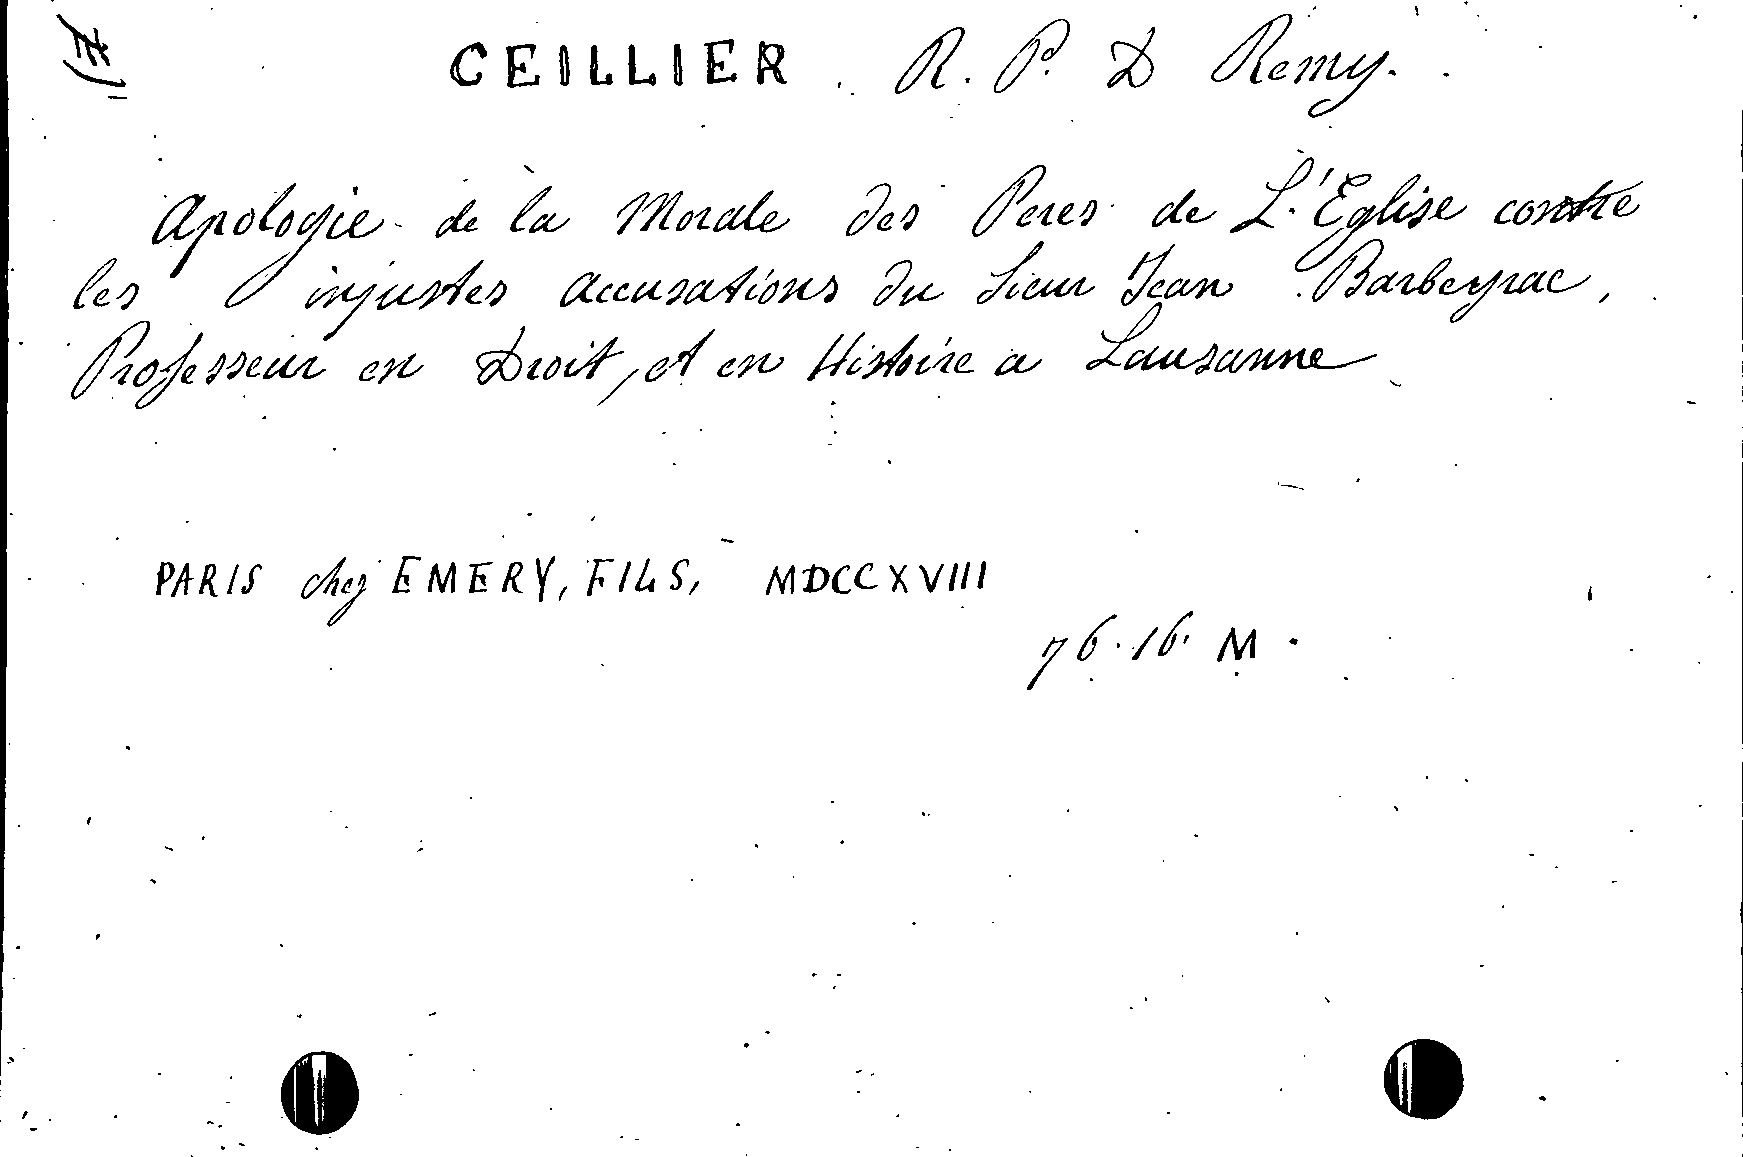 CEILLIER. R. P. D Remy.
Apologie de la Morale des Peres de L'Eglise contre
les injustes accusations du Sieur Jean Barbeyrac,
Professeur en Droit, et en Histoire a Lausanne
PARIS chez EMERY, FILS, MDCCXVIII
76.16. M.